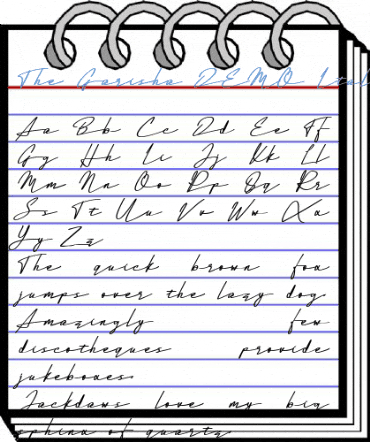 The Garisha DEMO Ital
Aa Bb Cc Dd Ee Ff
Gg Hh Ii Jj Kk Ll
Mm Nn Oo Pp Qq Rr
Ss Tt Uu Vv Ww Xx
Yy Zz
The quick brown fox
jumps over the lazy dog
Amazingly few
discotheques provide
jukeboxes
Jackdaws love my big
sphinx of quartz